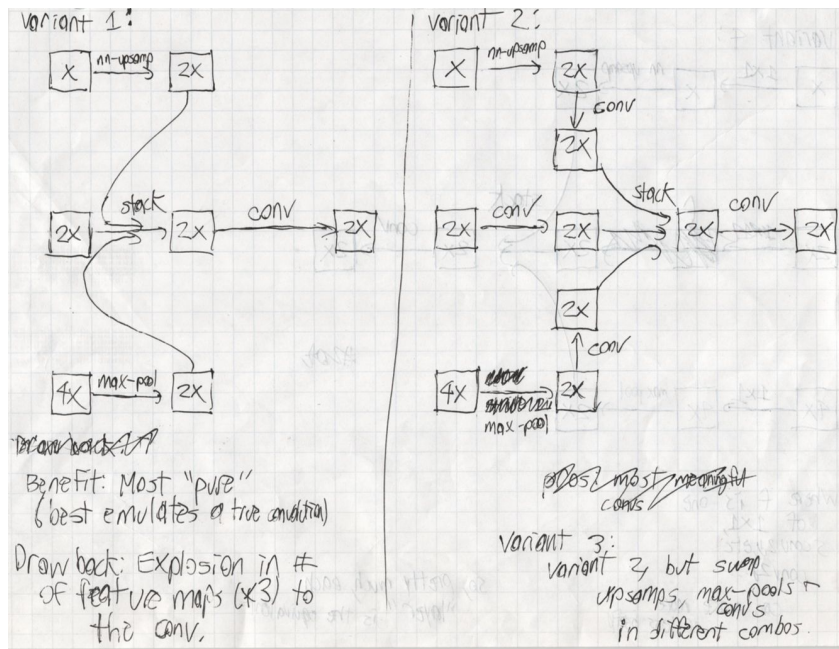 Variant 1:
X nn-upsamp 2X
2X stack 2X conv 2X
4X max-pool 2X
Benefit: Most "pure"
(best emulates a true convolution)
Drawback: Explosion in #
of feature maps (x3) to
the conv.
Variant 2:
X nn-upsamp 2X
conv
2X
2X conv 2X stack 2X conv 2X
2X
conv
4X max-pool 2X
most
convs
Variant 3:
Variant 2, but swap
upsamps, max-pools +
convs
in different combos.